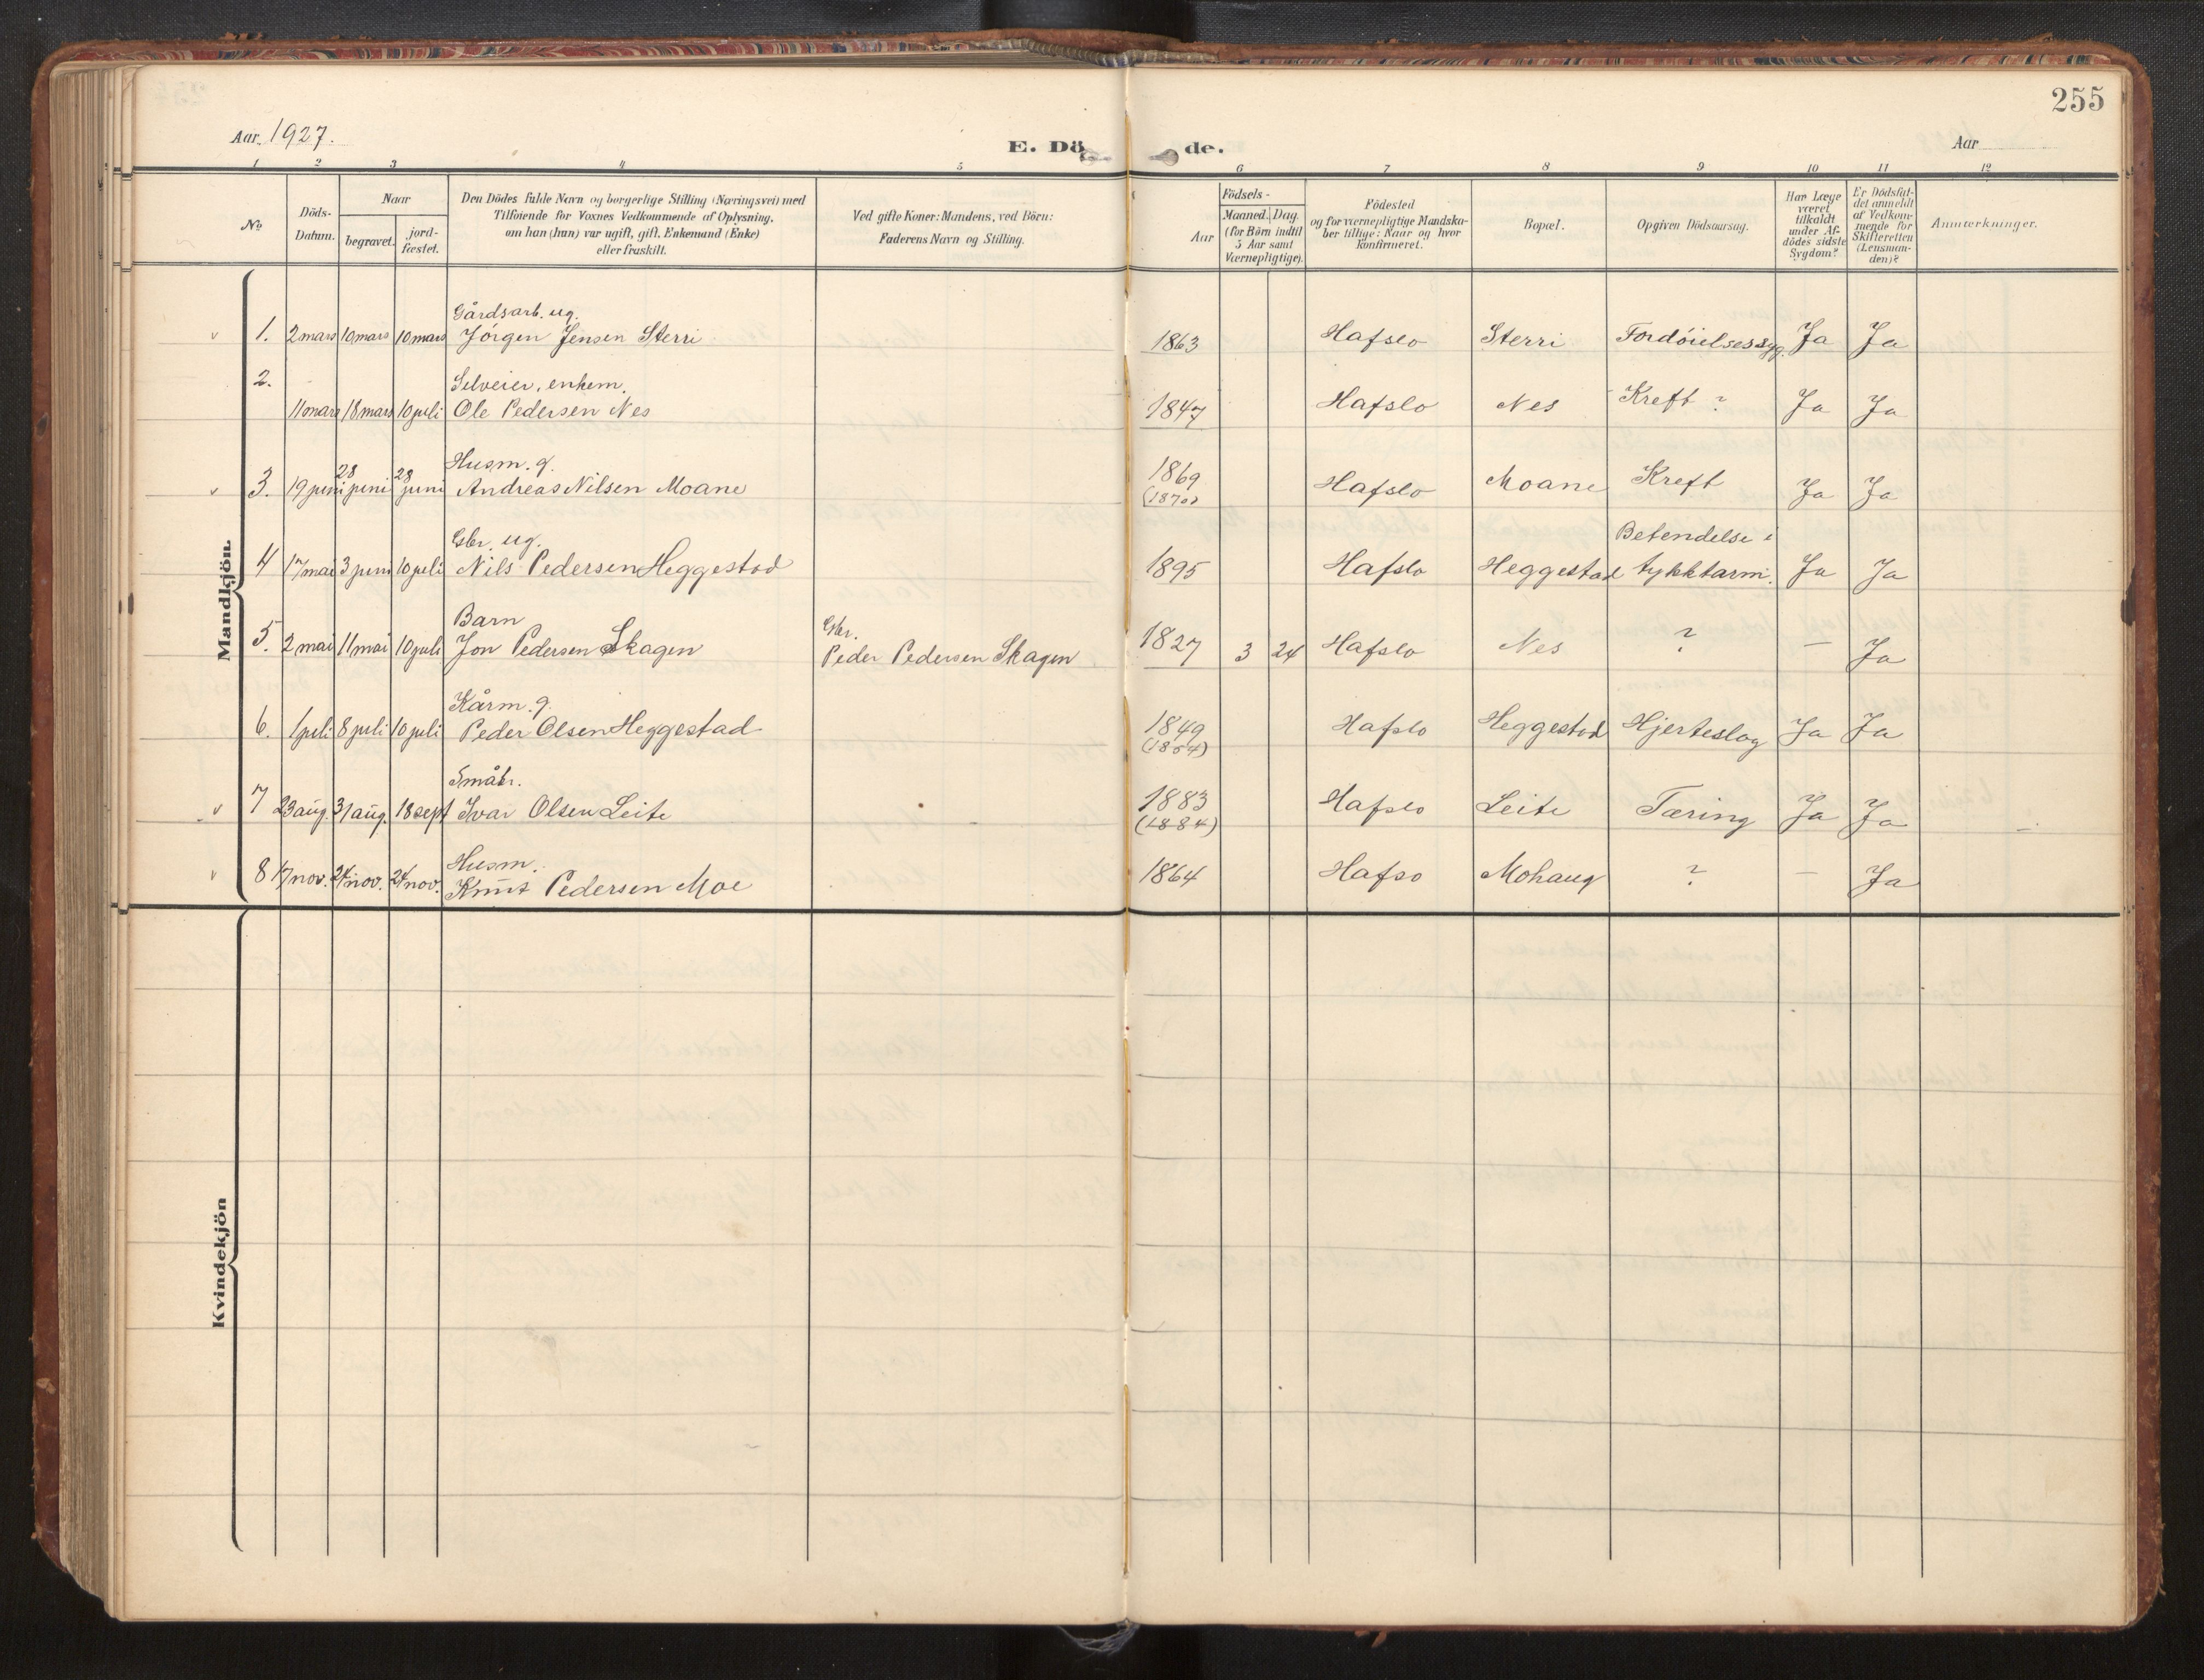 255
Aar 1927.
E. Dö de.
Aar
1 2 3 4 5 6 7 8 9 10 11 12
No
Döds-Datum.
Naar
begravet.
jord-fæstet.
Den Dödes fulde Navn og borgerlige Stilling (Næringsvei) med
Tilföiende for Voxnes Vedkommende af Oplysning,
om han (hun) var ugift, gift, Enkemand (Enke)
eller fraskilt.
Ved gifte Koner: Mandens, ved Börn:
Faderens Navn og Stilling.
Aar
Födsels-
Maaned. Dag.
(for Börn indtil
5 Aar samt
Værnepligtige).
Födested
og for værnepligtige Mandska-
ber tillige: Naar og hvor
konfirmeret.
Bopæl.
Opgiven Dödsaarsag.
Har Læge
været
tilkaldt
under Af-
dödes sidste
Sygdom?
Er Dödsfal-
det anmeldt
af Vedkom-
mende for
Skifteretten
(Lensman-
den)?
Anmærkninger.
Mandkjön.
Gårdsarb. ug.
v 1. 2 mars 10 mars 10 mars Jörgen Jensen Sterri 1863 Hafslo Sterri Fordöielsessyg. Ja Ja
2. Selveier, enkem.
11 mars 18 mars 10 juli Ole Pedersen Nes 1847 Hafslo Nes Kreft ? Ja Ja
Husm. g.
v 3. 19 juni 28 juni 28 juni Andreas Nilsen Moane 1869 Hafslo Moane Kreft Ja Ja
(1870)
Gbr. ug. Betendelse i
4 17 mai 3 juni 10 juli Nils Pedersen Heggestad 1895 Hafslo Heggestad tykktarm. Ja Ja
Barn Gbr.
5. 2 mai 11 mai 10 juli Jon Pedersen Skagen Peder Pedersen Skagen 1827 3 24 Hafslo Nes ? – Ja
Kårm. g.
6. 1 juli 8 juli 10 juli Peder Olsen Heggestad 1849 Hafslo Heggestad Hjerteslag Ja Ja
(1854)
Småbr.
v 7 23 aug. 31 aug. 18 sept Ivar Olsen Leite 1883 Hafslo Leite Tæring Ja Ja
(1884)
Husm.
v 8 17 nov. 24 nov. 24 nov. Knut Pedersen Moe 1864 Hafso Mohaug ? – Ja
Kvindekjön